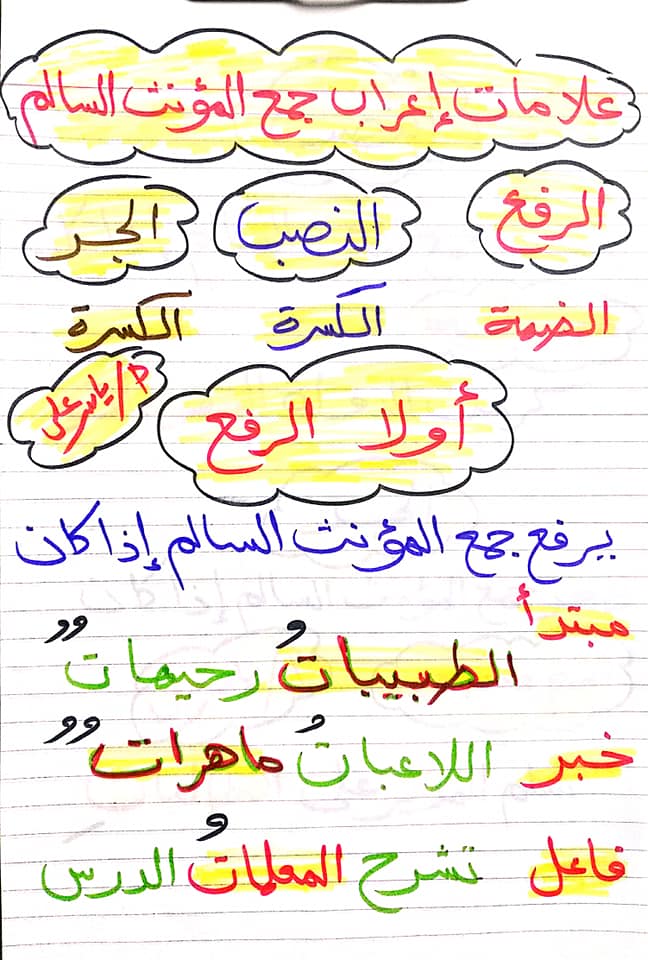 علامات إعراب جمع المؤنث السالم
الرفع النصب الجر
الضمة الكسرة الكسرة
أولا الرفع م/ياسر على
يرفع جمع المؤنث السالم إذا كان
مبتدأ
الطبيباتُ رحيماتٌ
خبر اللاعباتُ ماهراتٌ
فاعل تشرح المعلماتُ الدرس